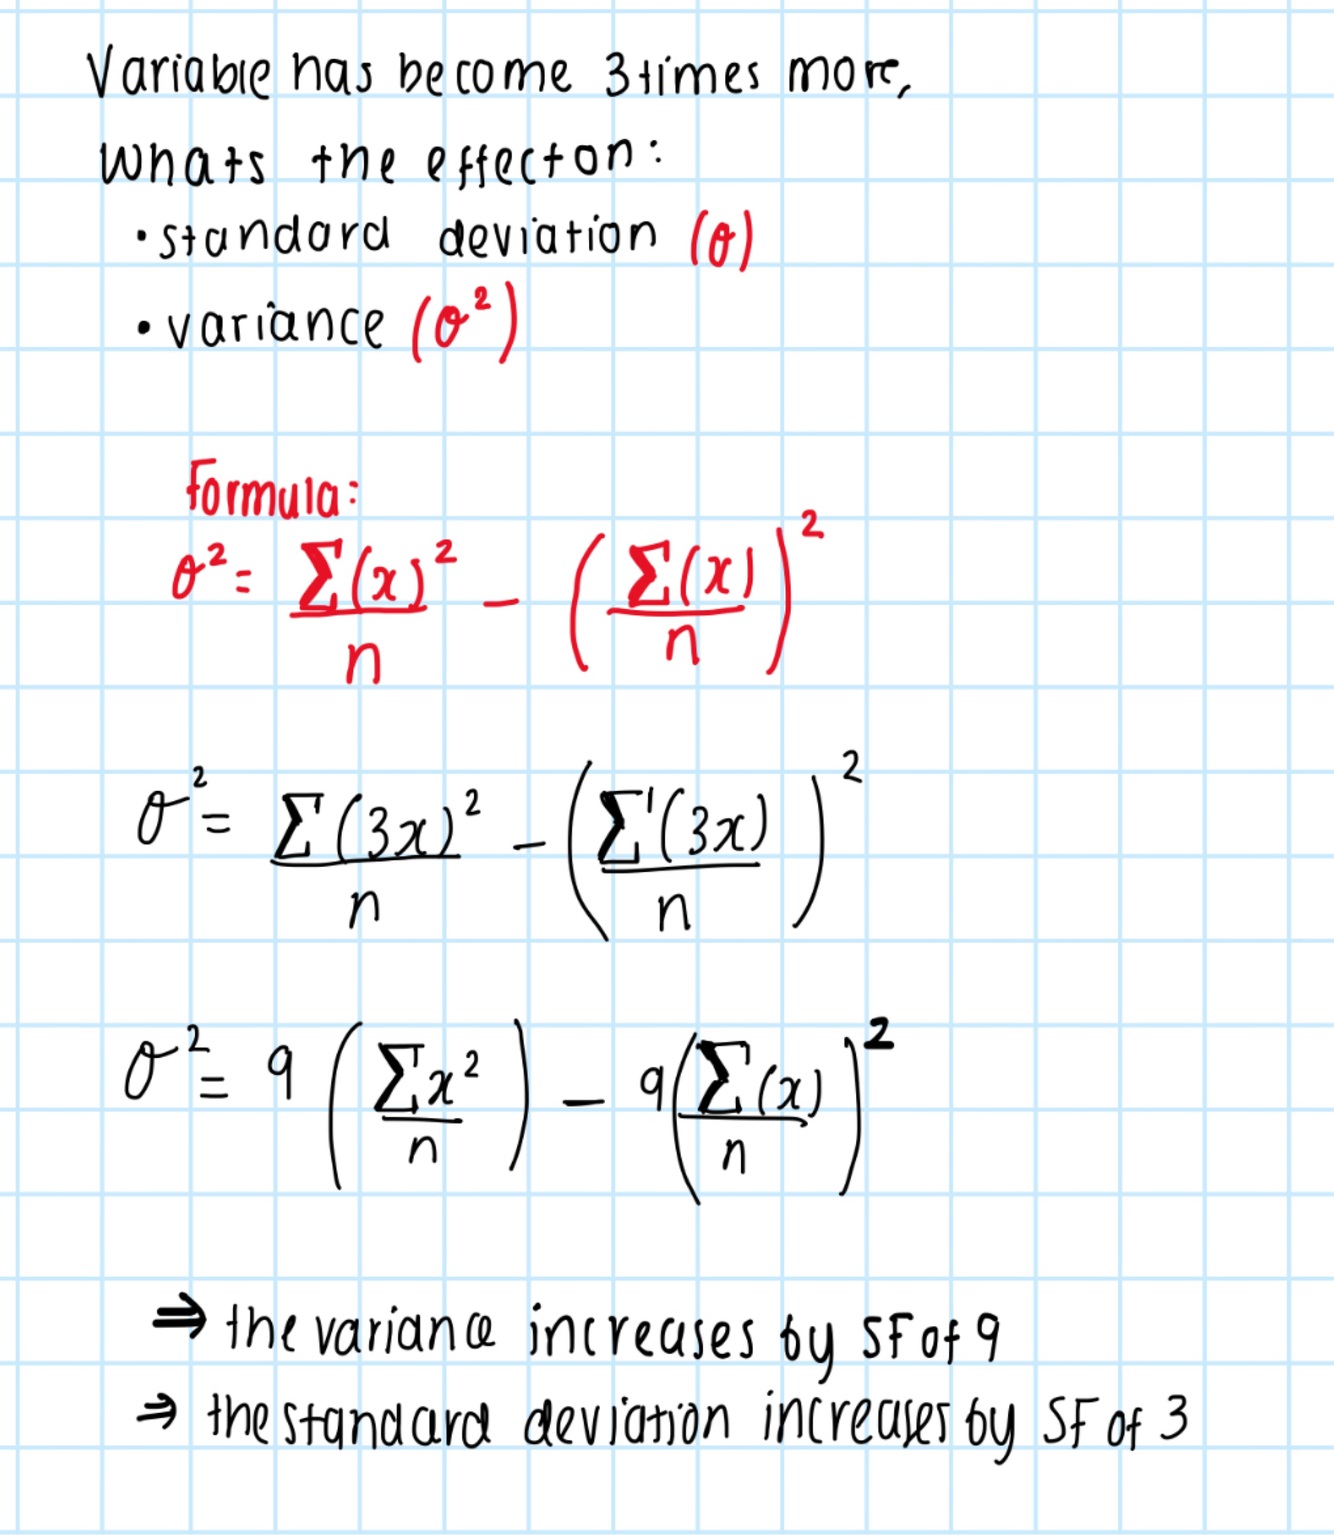 Variable has become 3 times more,
Whats the effect on:
• standard deviation (σ)
• variance (σ²)
Formula:
σ² = Σ(x)²/n − (Σ(x)/n)²
σ² = Σ(3x)²/n − (Σ(3x)/n)²
σ² = 9(Σx²/n) − 9(Σ(x)/n)²
⇒ the variance increases by SF of 9
⇒ the standard deviation increases by SF of 3